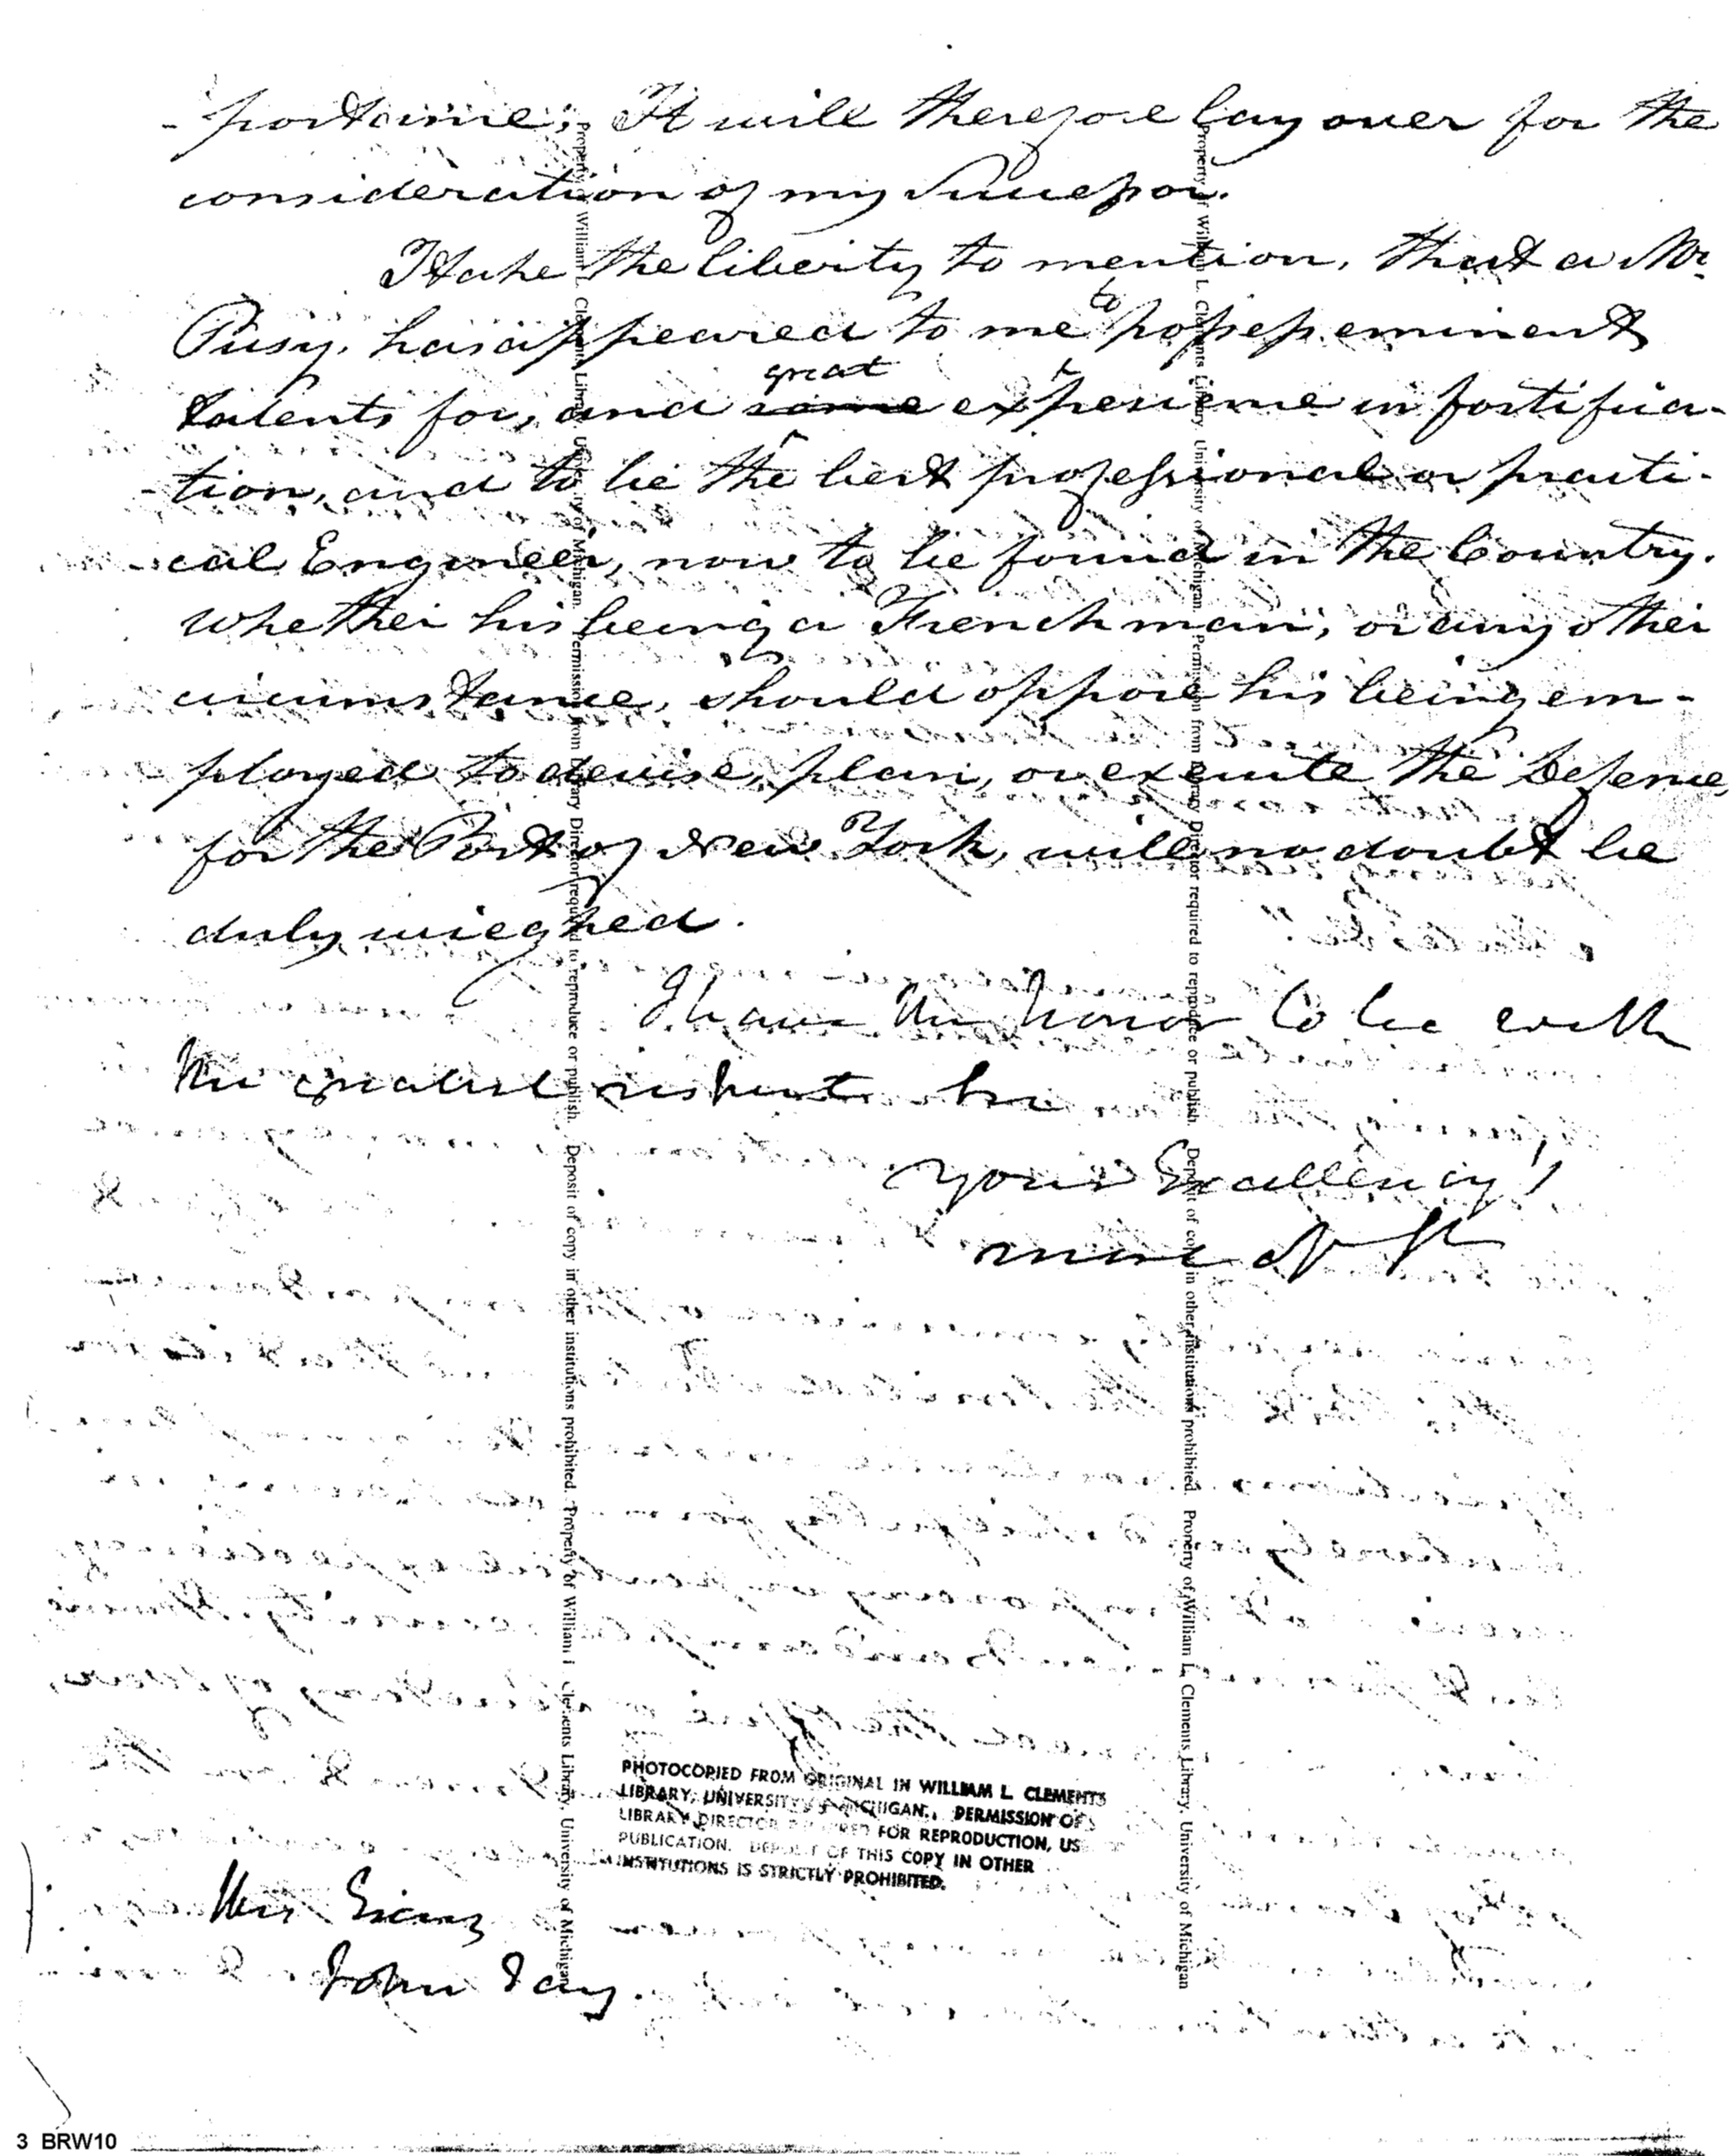 -portance; It will therefore lay over for the
consideration of my Successor.
I take the liberty to mention, that a Mr.
Pusy, has appeared to me to possess eminent
talents for, and some great experience in fortifica-
-tion, and to be the best professional or practi-
-cal Engineer, now to be found in the Country.
Whether his being a Frenchman, or any other
circumstance, should oppose his being em-
ployed to devise, plan, or execute the defence,
for the Port of New York, will no doubt be
duly wieghed.
I have the honor to be with
the greatest respect
your Excellency's
His Excey
John Jay.
PHOTOCOPIED FROM ORIGINAL IN WILLIAM L. CLEMENTS
LIBRARY, UNIVERSITY OF MICHIGAN. PERMISSION OF
LIBRARY DIRECTOR REQUIRED FOR REPRODUCTION, US
PUBLICATION. DEPOSIT OF THIS COPY IN OTHER
INSTITUTIONS IS STRICTLY PROHIBITED.
Property of William L. Clements Library, University of Michigan. Permission from Library Director required to reproduce or publish. Deposit of copy in other institutions prohibited. Property of William L. Clements Library, University of Michigan
Property of William L. Clements Library, University of Michigan. Permission from Library Director required to reproduce or publish. Deposit of copy in other institutions prohibited. Property of William L. Clements Library, University of Michigan
3 BRW10